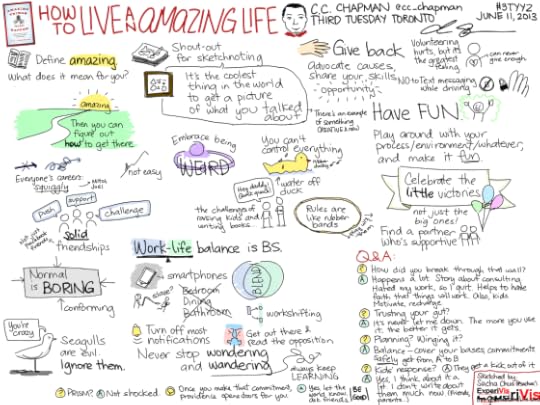 HOW TO LIVE AN AMAZING LIFE
C.C. CHAPMAN @cc_chapman
THIRD TUESDAY TORONTO
#3TYYZ
JUNE 11, 2013
Define amazing.
What does it mean for you?
amazing
Then you can
figure out
how to get there
Everyone's career:
squiggly
not easy
push
support
challenge
solid
friendships
Normal
is BORING
conforming
You're
crazy
Seagulls
are evil.
Ignore them.
Shout-out
for sketchnoting
It's the coolest
thing in the world
to get a picture
of what you talked
about
Embrace being
WEIRD
You can't
control everything
water off
duck
the challenges of
raising kids and
writing books
Rules are
like rubber
bands
Work-life balance is BS.
smartphones
Bedroom
Dining
Bathroom
BLEND
workshifting
Turn off most
notifications
Get out there &
read the opposition
Never stop wondering
and wandering
always keep
LEARNING
PRISM?
Not shocked.
Once you make that commitment,
providence opens doors for you
Yes, let the
world know,
BE GOOD
Give back
Advocate causes,
share your skills
opportunity
Volunteering
hurts, but it's
the greatest
feeling
can never
give enough
NO to Text messaging
while driving
There's an example
of something
Have FUN
Play around with your
process/environment/whatever,
and make it fun.
Celebrate the
little victories
not just the
big ones!
Find a partner
who's supportive
Q&A:
How did you break through that wall?
Happens a lot. Story about consulting
Hated my work, so I quit. Helps to have
faith that things will work. Also, kids
Motivate, recharge
Trusting your gut?
It's never let me down. The more you use
it, the better it gets.
Planning? Winging it?
Balance - cover your bases, commitments
Safely get from A to B
Kids' response?
They get a kick out of it
Yes, I think about it a
lot. I don't write about them
much now
Sketched by
Sacha Chua